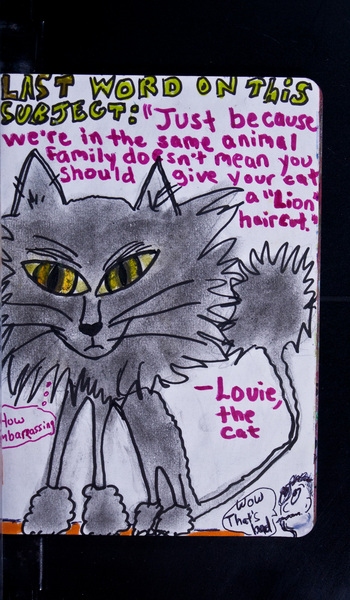 LAST WORD ON THIS
SUBJECT: "Just because
we're in the same animal
family doesn't mean you
should give your cat
a "Lion"
haircut."
-Louie,
the
cat
How
mbarrassing
Wow
That's
bad